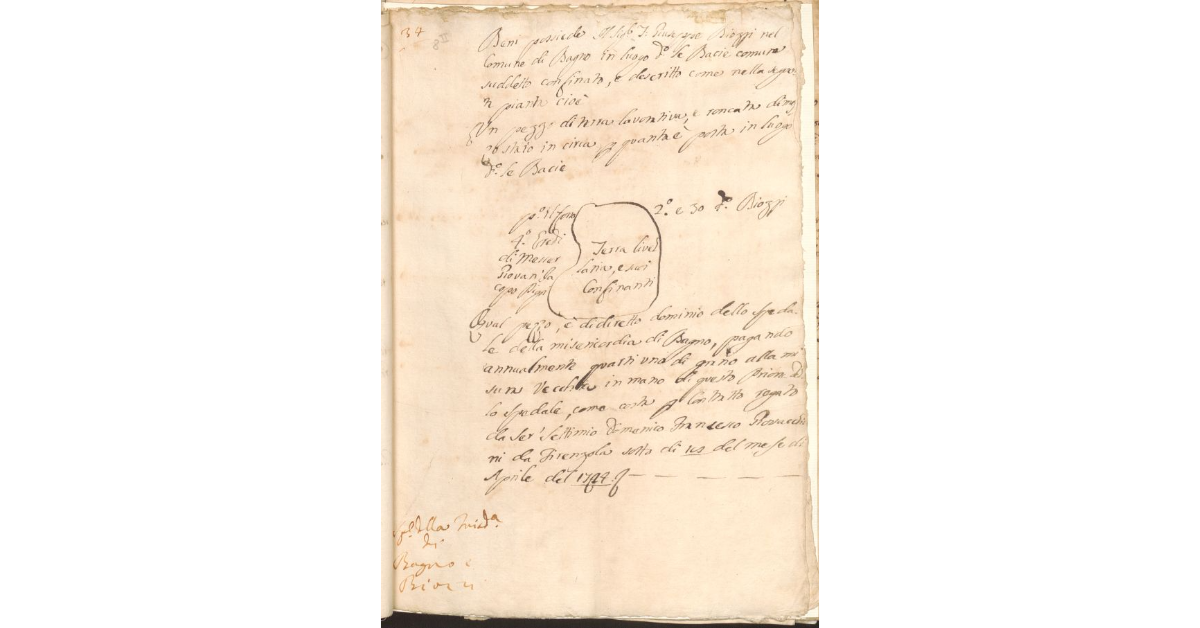 34
Beni possiede Il Sig.
Biozzi nel
Comune di Bagno in luogo d.o le Bacie comune
suddetto confinato, e descritto come nella
pianta cioè
Un pezzo di terra lavorativa, e roncata di
staio in circa p quanta è posta in luogo
d.o le Bacie
p.o Il
2.o e 3o d.o Biozzi
4.o Eredi
di Messer
Giovan Ia
copo
Terra livel
laria, e suoi
Confinanti
Qual pezzo, è di diretto dominio dello speda
le della misericordia di Bagno, pagando
annualmente quarti uno di grano alla mi
sura Vecchia in mano di questo Priore de
lo spedale, come costa p Contratto rogato
da Ser Settimio Domenico Francesco
ni da Firenzola sotto di del mese di
Aprile del 1744
della
di
Bagno e
Biozzi